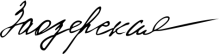 Заозерская